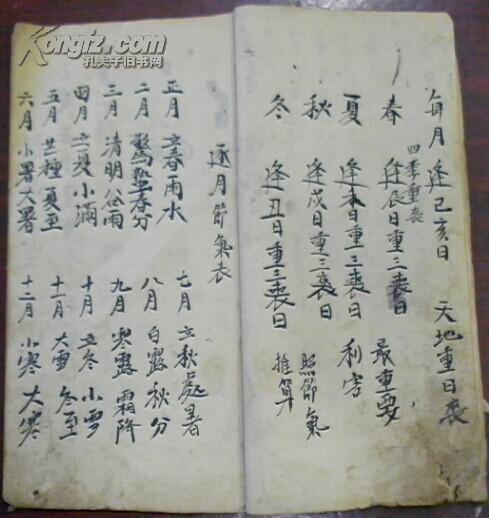 Kongfz.com
孔夫子旧书网
每月逢己亥日 天地重日丧
四季重丧
春 逢辰日重三丧日 最重要,
夏 逢未日重三丧日 利害
秋 逢戌日重三丧日
冬 逢丑日重三丧日
照節氣
推算
逐月節氣表
正月 立春雨水
二月 驚蟄春分
三月 清明谷雨
四月 立夏小滿
五月 芒種夏至
六月 小署大署
七月 立秋處暑
八月 白露秋分
九月 寒露霜降
十月 立冬小雪
十一月 大雪冬至
十二月 小寒大寒